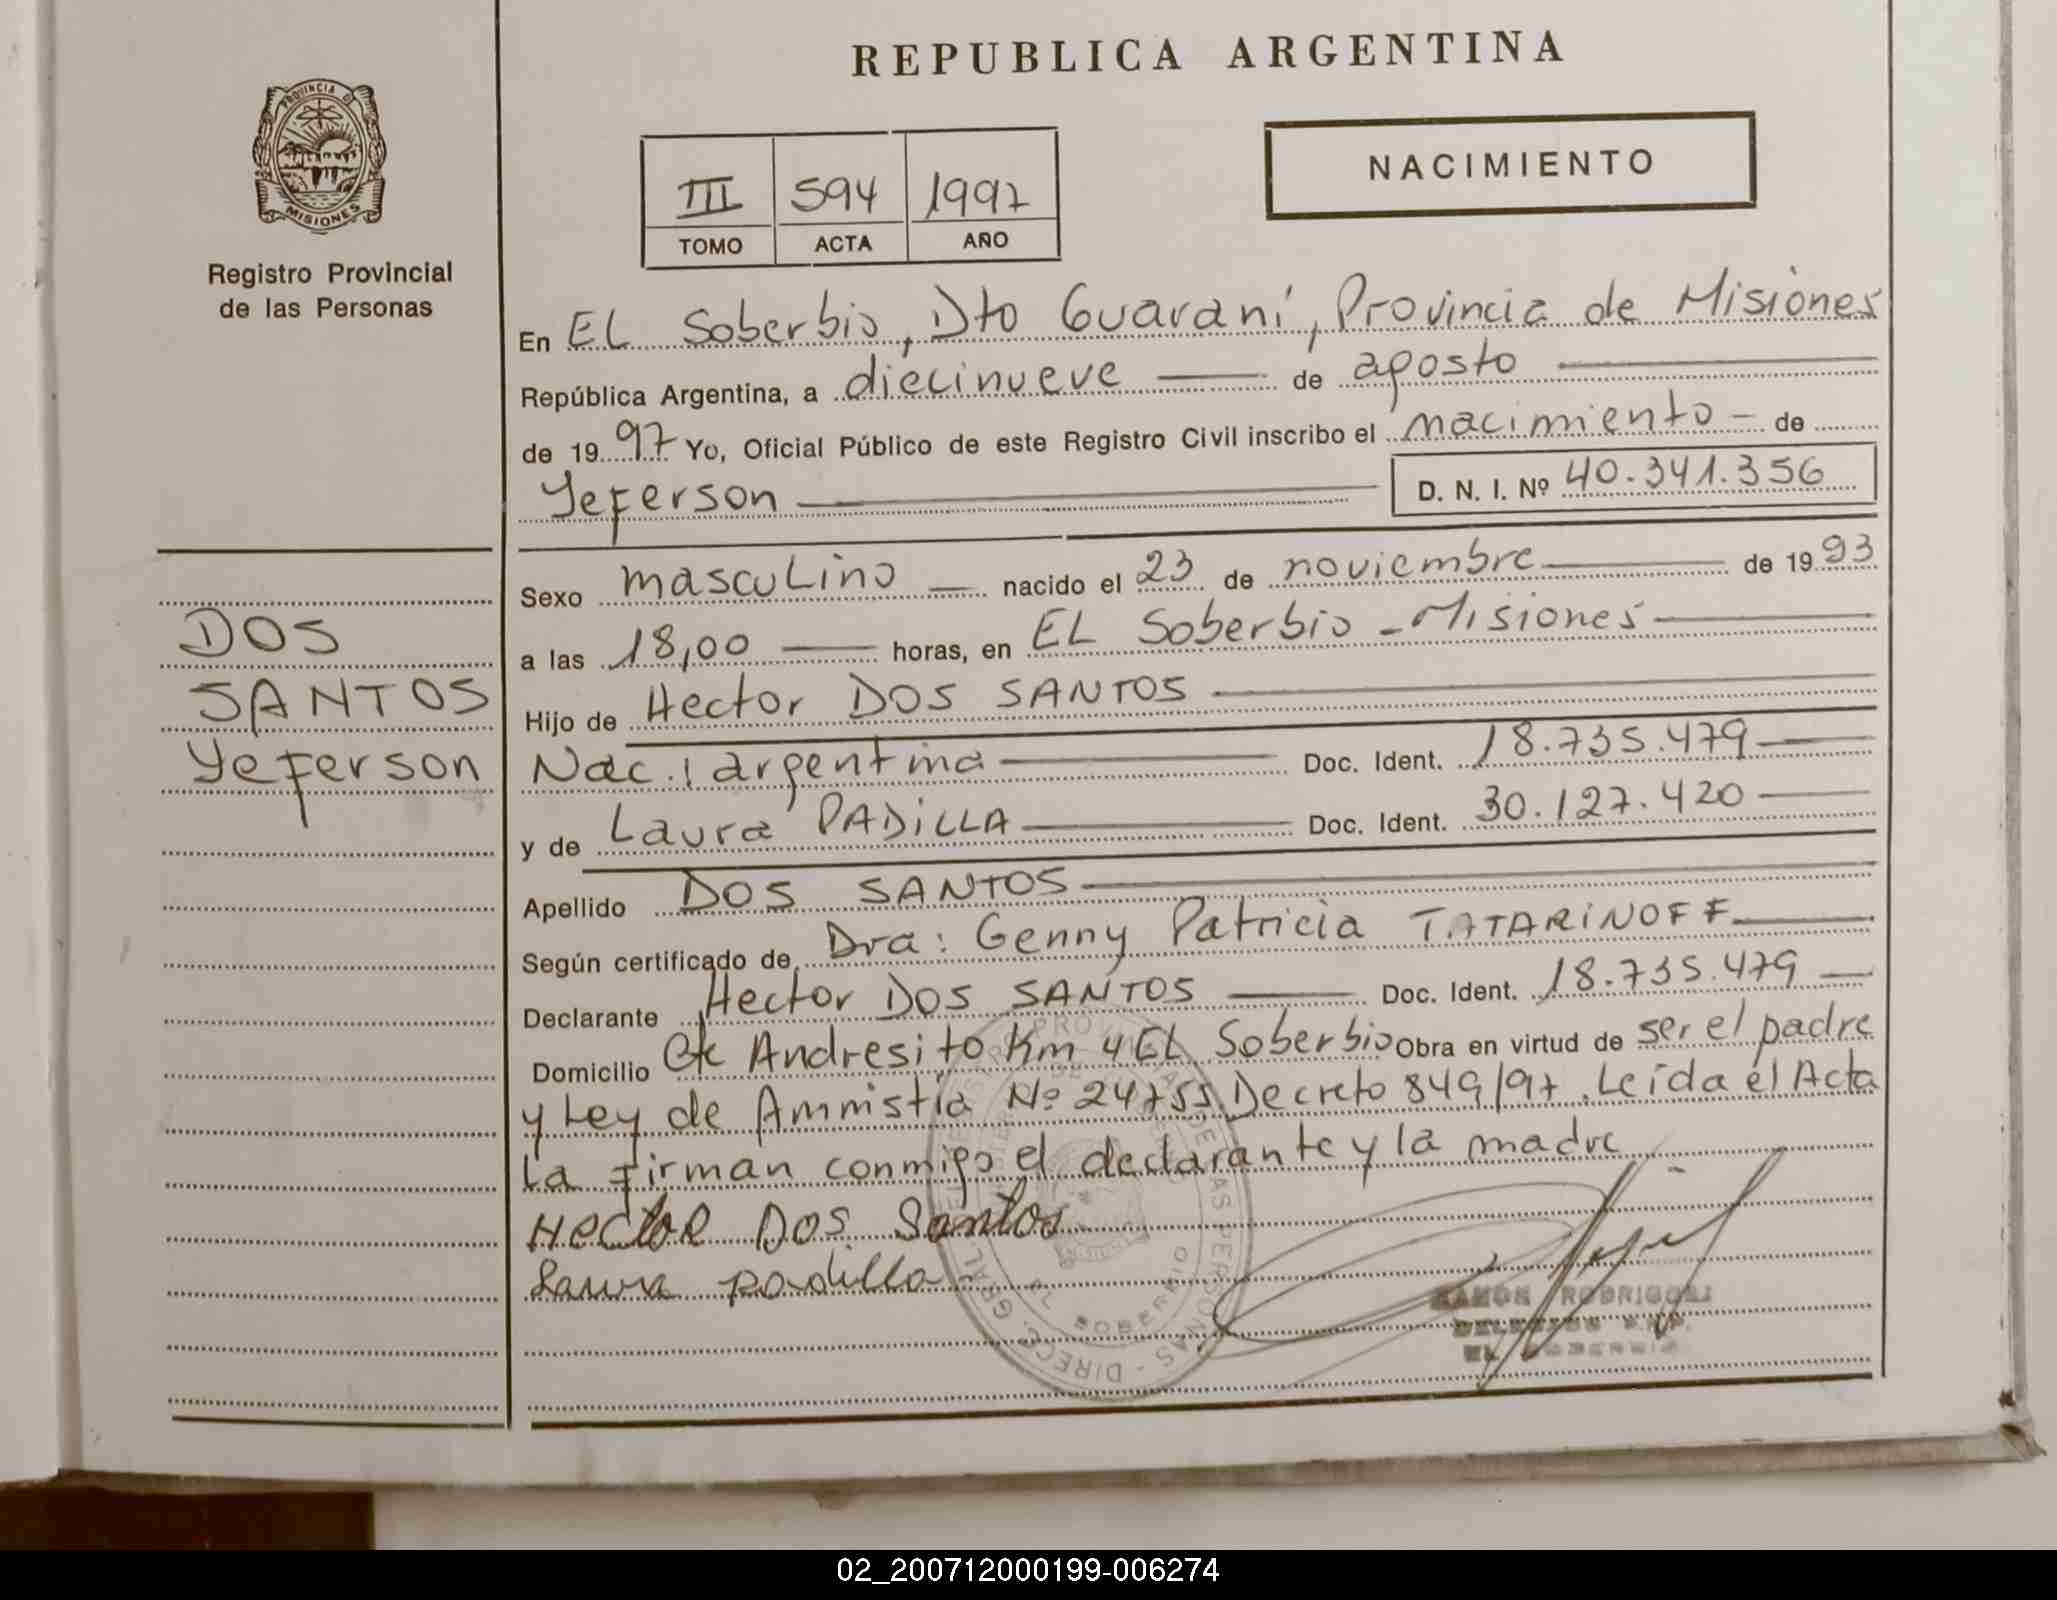 REPUBLICA ARGENTINA
PROVINCIA D
MISIONES
Registro Provincial
de las Personas
NACIMIENTO
III 594 1997
TOMO ACTA AÑO
En EL Soberbio, Dto Guaraní, Provincia de Misiones
República Argentina, a diecinueve de agosto
de 1997 Yo, Oficial Público de este Registro Civil inscribo el nacimiento de
Yeferson D. N. I. Nº 40.341.356
Sexo masculino nacido el 23 de noviembre de 1993
a las 18,00 horas, en EL Soberbio - Misiones
Hijo de Hector DOS SANTOS
Nac.: argentina Doc. Ident. 18.735.479
y de Laura PADILLA Doc. Ident. 30.127.420
Apellido DOS SANTOS
Según certificado de Dra: Genny Patricia TATARINOFF
Declarante Hector DOS SANTOS Doc. Ident. 18.735.479
Domicilio Cte Andresito Km 4 EL Soberbio Obra en virtud de ser el padre
y Ley de Amnistía Nº 24755 Decreto 849/97. Leída el Acta
La firman conmigo el declarante y la madre
Hector Dos Santos
Laura padilla
DOS
SANTOS
Yeferson
EL SOBERBIO
RAMON RODRIGUEZ
EL SOBERBIO
02_200712000199-006274